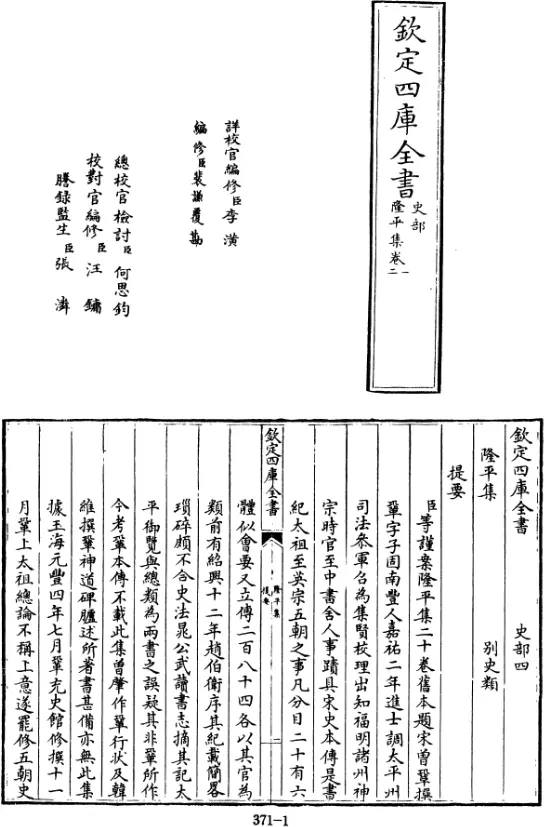 欽定四庫全書
史部
隆平集卷一
二
詳校官編修臣李潢
編修臣裴謙覆勘
總校官檢討臣何思鈞
校對官編修臣汪鏞
謄錄監生臣張濂
欽定四庫全書 史部四
隆平集 別史類
提要
臣等謹案隆平集二十卷舊本題宋曾鞏撰
鞏字子固南豐人嘉祐二年進士調太平州
司法參軍召為集賢校理出知福明諸州神
宗時官至中書舍人事蹟具宋史本傳是書
紀太祖至英宗五朝之事凡分目二十有六
欽定四庫全書
隆平集
提要
二
體似會要又立傳二百八十四各以其官為
類前有紹興十二年趙伯衛序其紀載簡畧
瑣碎頗不合史法晁公武讀書志摘其記太
平御覽與總類為兩書之誤疑其非鞏所作
今考鞏本傳不載此集曾肇作鞏行狀及韓
維撰鞏神道碑臚述所著書甚備亦無此集
據玉海元豐四年七月鞏充史館修撰十一
月鞏上太祖總論不稱上意遂罷修五朝史
371-1